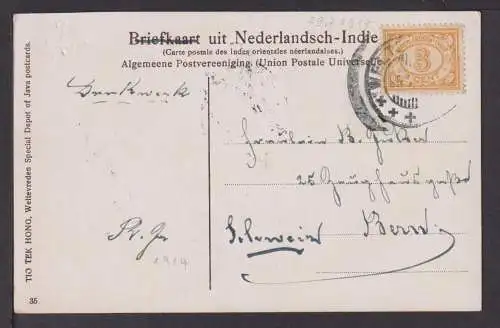 29.7.1914
Briefkaart uit Nederlandsch-Indie
(Carte postale des Indes orientales néerlandaises.)
Algemeene Postvereeniging (Union Postale Universelle
3
WELT
Fräulein B.
25 Zeughausgasse
Bern
Schweiz
1914
TIO TEK HONG, Weltevreden Special Depot of Java postcards.
35